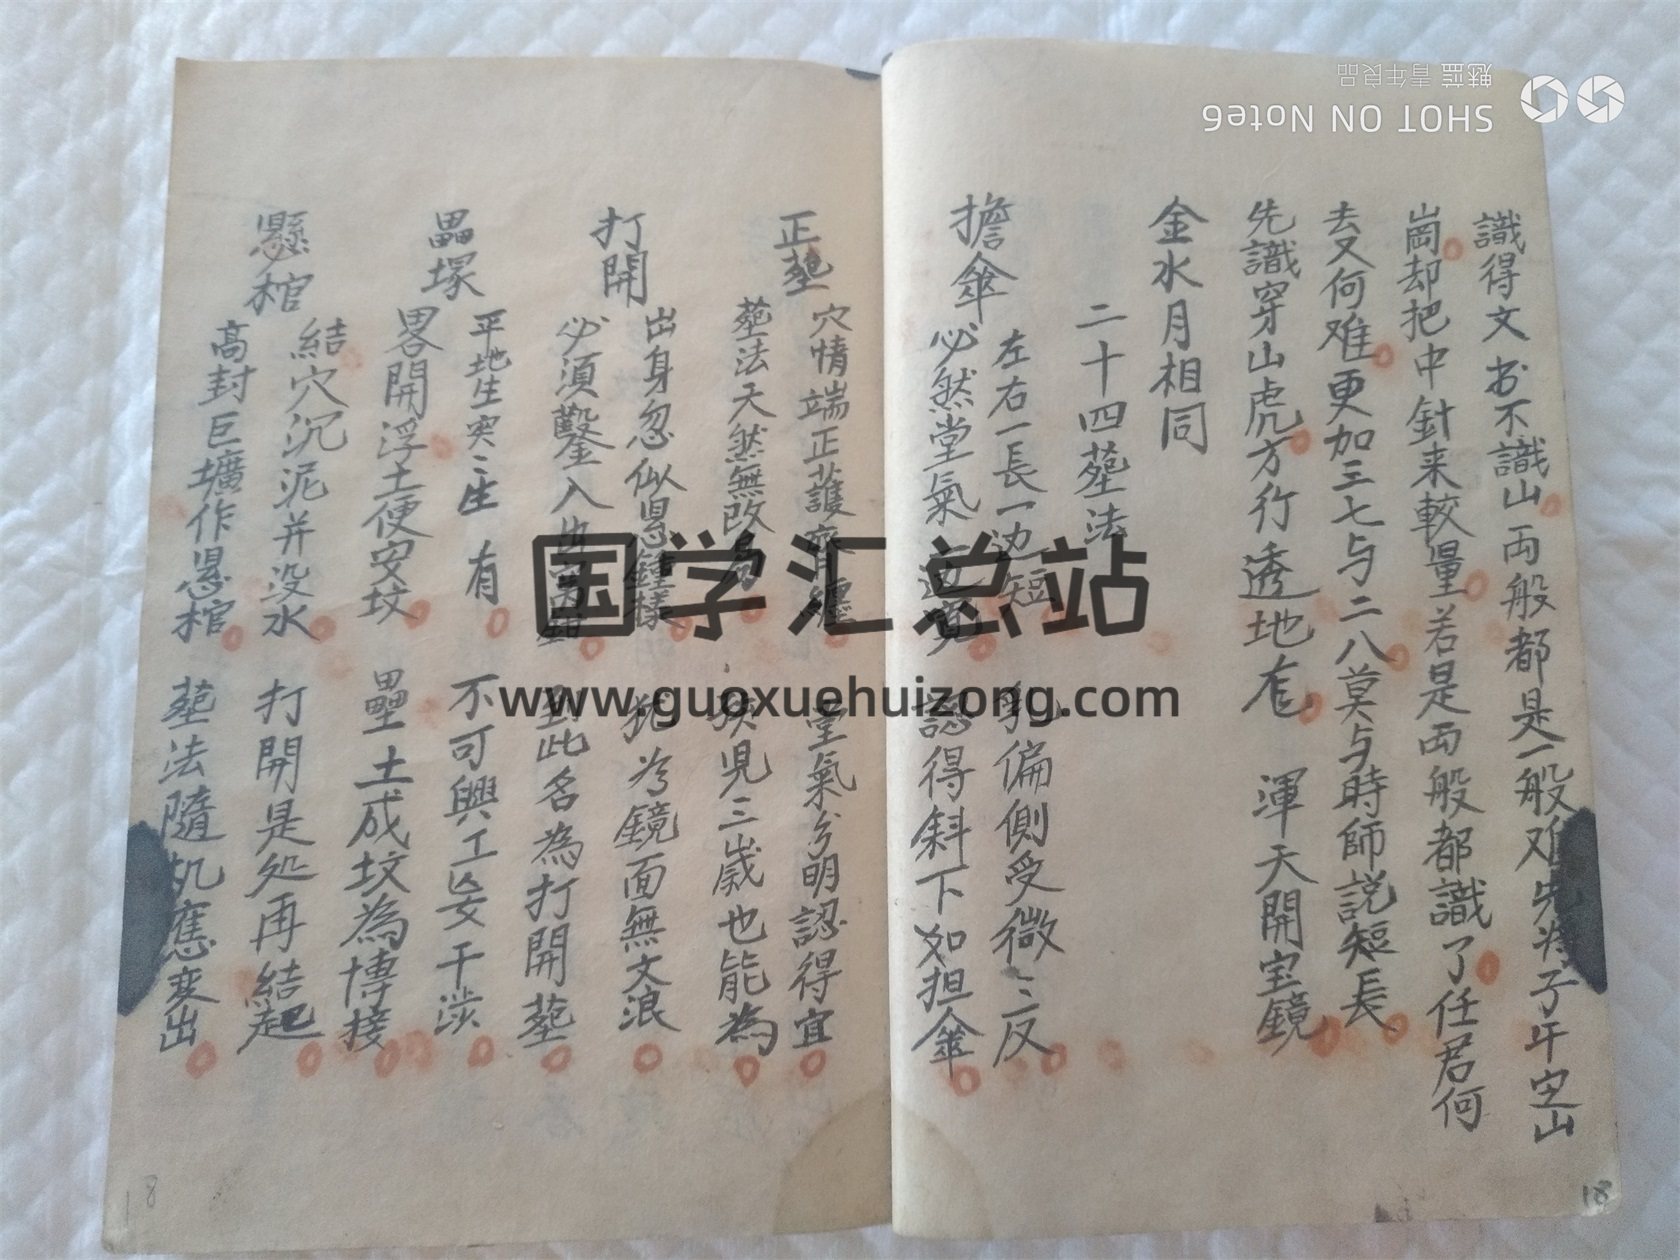 識得文书不識山両般都是一般难先将子午定山
崗却把中針来較量若是両般都識了任君何
去又何难更加三七与二八莫与時師説短長
先識穿山虎方行透地 渾天開宝鏡
金水月相同
二十四塟法
擔傘
左右一長一边短 乳偏側受微〻反
必然堂氣 認得斜下如担傘
正塟
穴情端正護齊纏 堂氣分明認得宜
塟法天然無改易 孩児三歳也能為
打開
出身忽似懸鐘樣 面無文浪
必須鑿入 到此名為打開塟
壘塚
平地生突〻生有 不可興工妄干涉
畧開浮土便安坟 壘土成坟為博接
懸棺
結穴沉泥并没水 打開是处再結起
高封巨壙作懸棺 塟法隨机應変出
国学汇总站
www.guoxuehuizong.com
SHOT ON Note6
魅蓝 青年良品
18
18